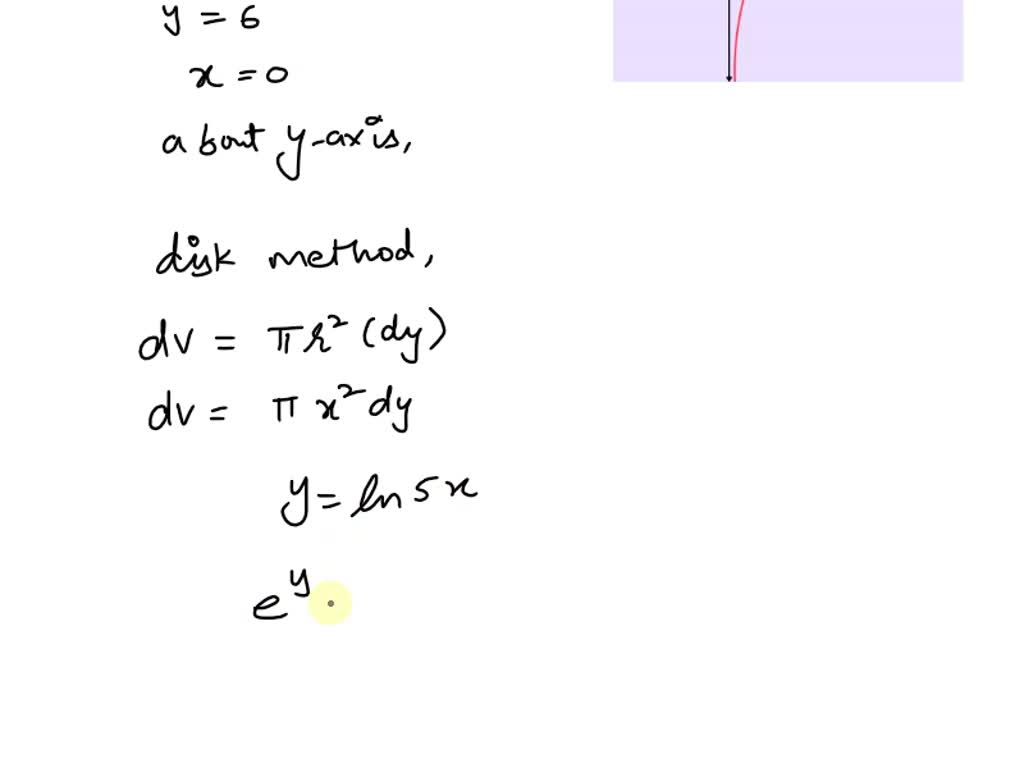 y = 6
x = 0
about y-axis,
disk method,
dv = πr² (dy)
dv = π x² dy
y = ln 5x
e^y